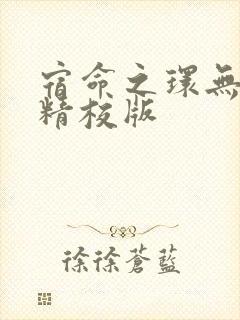 宿命之環無
精校版
徐徐蒼藍